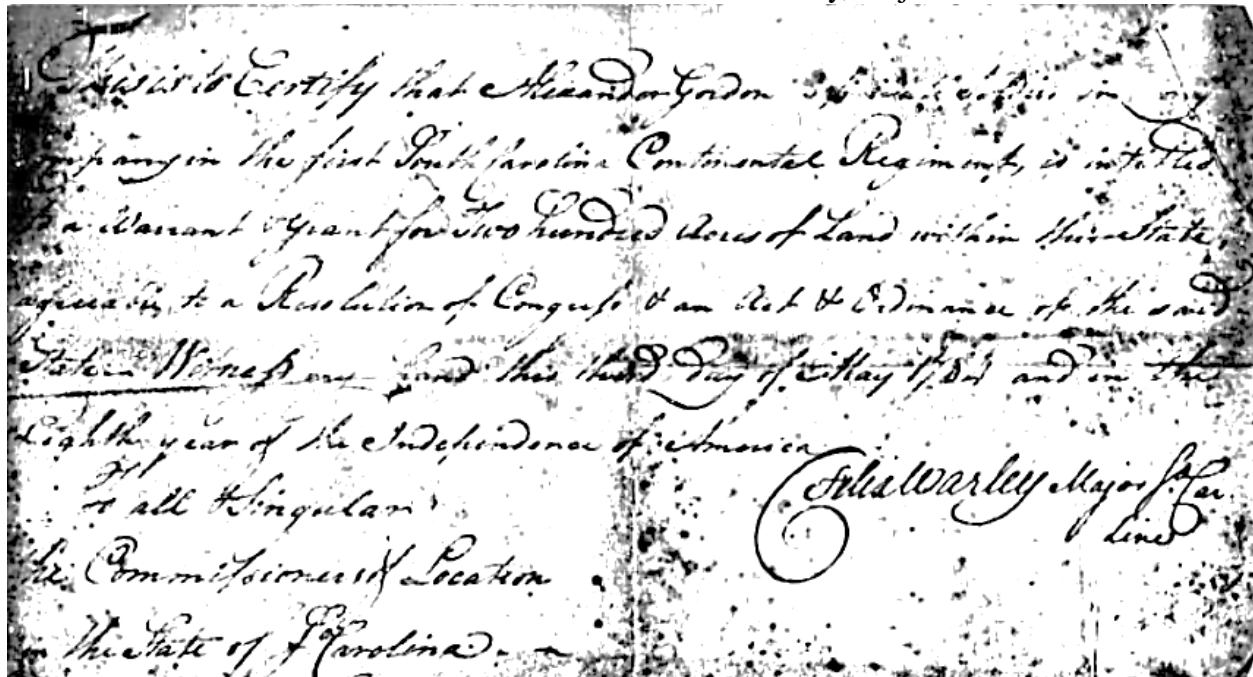 This is to Certify that Alexander Gordon a private soldier in my
Company in the first South Carolina Continental Regiment, is intitled
to a Warrant & Grant for Two hundred Acres of Land within this State,
agreeably to a Resolution of Congress & an Act & Ordinance of the said
State. Witness my hand this third Day of May and in the
Eighth year of the Independence of America
Felix Warley Major So. Car.
Line
To all & Singular
the Commissioners of Location
in the State of So. Carolina.